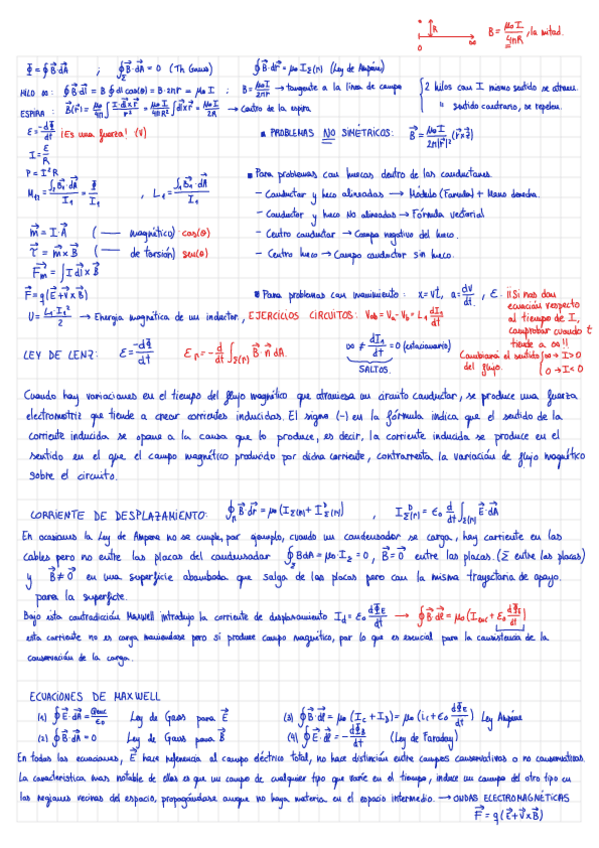 B = μ₀I / 4πR , la mitad.
R
0 ∞
Φ = ∮ B⃗·dA⃗ ; ∮_Σ B⃗·dA⃗ = 0 (Th Gauss) ∮ B⃗·dr⃗ = μ₀ I_Σ(Γ) (Ley de Ampère)
HILO ∞: ∮ B⃗·dl⃗ = B ∮ dl cos(0) = B·2πr = μ₀ I ; B = μ₀I / 2πr → tangente a la línea de campo
{ 2 hilos con I mismo sentido se atraen.
" sentido contrario, se repelen.
ESPIRA: B⃗(r⃗) = μ₀/4π ∫ I·dl⃗×r⃗ / r² = μ₀I / 4πR² ∫ dl⃗×r⃗ = μ₀I / 2R → Centro de la espira
ε = -dΦ/dt ¡Es una fuerza! (V)
■ PROBLEMAS NO SIMÉTRICOS: B⃗ = μ₀I / 2π|r⃗|² (r⃗×z⃗)
I = ε/R
P = I²R
■ Para problemas con huecos dentro de los conductores.
M₁₂ = ∫ B⃗₁·dA⃗ / I₁ = Φ / I₁ , L₁ = ∫ B⃗₁·dA⃗ / I₁
- Conductor y hueco alineados → Módulo (Faraday) + Mano derecha.
- Conductor y hueco NO alineados → Fórmula vectorial
m⃗ = I·A⃗ (— magnético) cos(θ)
- Centro conductor → Campo negativo del hueco.
τ⃗ = m⃗×B⃗ (— de torsión) sen(θ)
- Centro hueco → Campo conductor sin hueco.
F⃗m = ∫ I dl⃗×B⃗
F⃗ = q(E⃗+v⃗×B⃗)
■ Para problemas con movimiento: x = vt, a = dv/dt, ε. ¡¡Si nos dan
ecuación respecto
al tiempo de I,
comprobar cuando t
tiende a ∞!!
U = L₁·I₁² / 2 → Energía magnética de un inductor, EJERCICIOS CIRCUITOS: Vab = Va - Vb = L₁ dI₁/dt
LEY DE LENZ: ε = -dΦ/dt ε_Γ = -d/dt ∫_Σ(Γ) B⃗·n⃗ dA. ∞ ≠ dI₁/dt = 0 (estacionario)
SALTOS.
Cambiará el sentido del flujo. { ∞ → I>0
0 → I<0
Cuando hay variaciones en el tiempo del flujo magnético que atraviesa un circuito conductor, se produce una fuerza
electromotriz que tiende a crear corrientes inducidas. El signo (-) en la fórmula indica que el sentido de la
corriente inducida se opone a la causa que lo produce, es decir, la corriente inducida se produce en el
sentido en el que el campo magnético producido por dicha corriente, contrarresta la variación de flujo magnético
sobre el circuito.
CORRIENTE DE DESPLAZAMIENTO: ∮_Γ B⃗·dr⃗ = μ₀(I_Σ(Γ) + I^D_Σ(Γ)) , I^D_Σ(Γ) = ε₀ d/dt ∫_Σ(Γ) E⃗·dA⃗
En ocasiones la Ley de Ampere no se cumple, por ejemplo, cuando un condensador se carga, hay corriente en los
cables pero no entre las placas del condensador ∮_Σ B dA = μ₀ I_Σ = 0, B⃗ = 0⃗ entre las placas. (Σ entre las placas)
y B⃗ ≠ 0⃗ en una superficie abombada que salga de las placas pero con la misma trayectoria de apoyo.
para la superficie.
Bajo esta contradicción Maxwell introdujo la corriente de desplazamiento I_d = ε₀ dΦ_E/dt → ∮ B⃗·dl⃗ = μ₀(I_enc + ε₀ dΦ_E/dt)
esta corriente no es carga moviéndose pero sí produce campo magnético, por lo que es esencial para la consistencia de la
conservación de la carga.
ECUACIONES DE MAXWELL
(1) ∮ E⃗·dA⃗ = Qenc/ε₀ Ley de Gauss para E⃗ (3) ∮ B⃗·dl⃗ = μ₀ (I_c + I_d) = μ₀ (i_c + ε₀ dΦ_E/dt) Ley Ampère
(2) ∮ B⃗·dA⃗ = 0 Ley de Gauss para B⃗ (4) ∮ E⃗·dl⃗ = -dΦ_B/dt (Ley de Faraday)
En todas las ecuaciones, E⃗ hace referencia al campo eléctrico total, no hace distinción entre campos conservativos o no conservativos.
La característica mas notable de ellas es que un campo de cualquier tipo que varíe en el tiempo, induce un campo del otro tipo en
las regiones vecinas del espacio, propagándose aunque no haya materia en el espacio intermedio. → ONDAS ELECTROMAGNÉTICAS
F⃗ = q(E⃗+v⃗×B⃗)